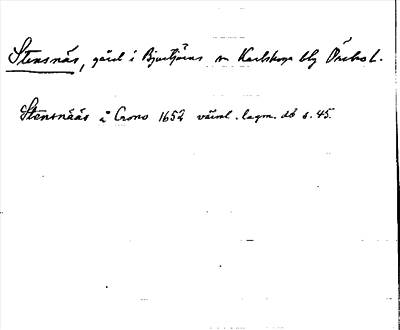 Stensnäs, gård i Bjurtjärns sn Karlskoga blg Örebro l.
Stensnääs å Crono 1652 värml. lagm. db s. 45.